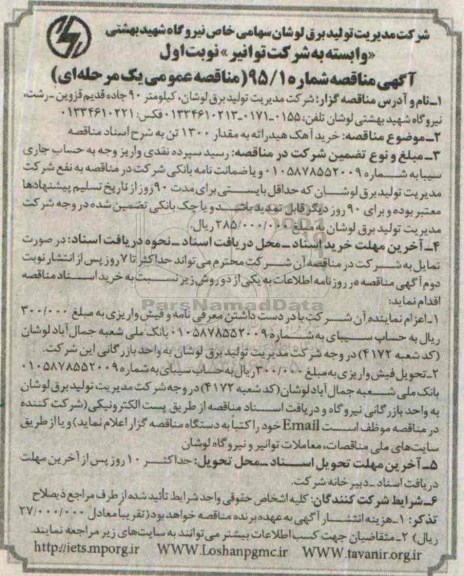 شرکت مدیریت تولید برق لوشان سهامی خاص نیروگاه شهید بهشتی
«وابسته به شرکت توانیر» نوبت اول
آگهی مناقصه شماره ۹۵/۱ (مناقصه عمومی یک مرحله‌ای)
۱ـ نام و آدرس مناقصه گزار: شرکت مدیریت تولید برق لوشان، کیلومتر ۹۰ جاده قدیم قزوین ـ رشت،
نیروگاه شهید بهشتی لوشان تلفن: ۰۱۵۵-۰۱۷۱-۰۱۳۳۴۶۱۰۲۱۳ فکس: ۰۱۳۳۴۶۱۰۲۲۱
۲ـ موضوع مناقصه: خرید آهک هیدراته به مقدار ۱۳۰۰ تن به شرح اسناد مناقصه
۳ـ مبلغ و نوع تضمین شرکت در مناقصه: رسید سپرده نقدی واریز وجه به حساب جاری
سیبا به شماره ۰۱۰۵۸۷۸۵۵۲۰۰۹ و یا ضمانت نامه بانکی شرکت در مناقصه به نفع شرکت
مدیریت تولید برق لوشان که حداقل بایستی برای مدت ۹۰ روز از تاریخ تسلیم پیشنهادها
معتبر بوده و برای ۹۰ روز دیگر قابل تمدید باشد و یا چک بانکی تضمین شده در وجه شرکت
مدیریت تولید برق لوشان به مبلغ ۲۸۵/۰۰۰/۰۰۰ ریال.
۴ـ آخرین مهلت خرید اسناد ـ محل دریافت اسناد ـ نحوه دریافت اسناد: در صورت
تمایل به شرکت در مناقصه آن شرکت محترم می‌تواند حداکثر تا ۷ روز پس از انتشار نوبت
دوم آگهی مناقصه در روزنامه اطلاعات به یکی از دو روش زیر نسبت به خرید اسناد مناقصه
اقدام نماید:
۱ـ اعزام نماینده آن شرکت با در دست داشتن معرفی نامه و فیش واریزی به مبلغ ۳۰۰/۰۰۰
ریال به حساب سیبای به شماره ۰۱۰۵۸۷۸۵۵۲۰۰۹ بانک ملی شعبه جمال آباد لوشان
(کد شعبه ۴۱۷۲) در وجه شرکت مدیریت تولید برق لوشان به واحد بازرگانی این شرکت.
۲ـ تحویل فیش واریزی به مبلغ ۳۰۰/۰۰۰ ریال به حساب سیبای به شماره ۰۱۰۵۸۷۸۵۵۲۰۰۹
بانک ملی شعبه جمال آباد لوشان (کد شعبه ۴۱۷۲) در وجه شرکت مدیریت تولید برق لوشان
به واحد بازرگانی نیروگاه و دریافت اسناد مناقصه از طریق پست الکترونیکی (شرکت کننده
در مناقصه موظف است Email خود را کتباً به دستگاه مناقصه گزار اعلام نماید) و یا از طریق
سایت‌های ملی مناقصات، معاملات توانیر و نیروگاه لوشان
۵ـ آخرین مهلت تحویل اسناد ـ محل تحویل: حداکثر ۱۰ روز پس از آخرین مهلت
دریافت اسناد ـ دبیرخانه شرکت.
۶ـ شرایط شرکت کنندگان: کلیه اشخاص حقوقی واجد شرایط تأئید شده از طرف مراجع ذیصلاح
تذکر: ۱ـ هزینه انتشار آگهی به عهده برنده مناقصه خواهد بود (تقریباً معادل ۲۷/۰۰۰/۰۰۰
ریال) ۲ـ متقاضیان جهت کسب اطلاعات بیشتر می‌توانند به سایت‌های زیر مراجعه نمایند.
http://iets.mporg.ir WWW.Loshanpgmc.ir WWW.tavanir.org.ir
ParsNamadData